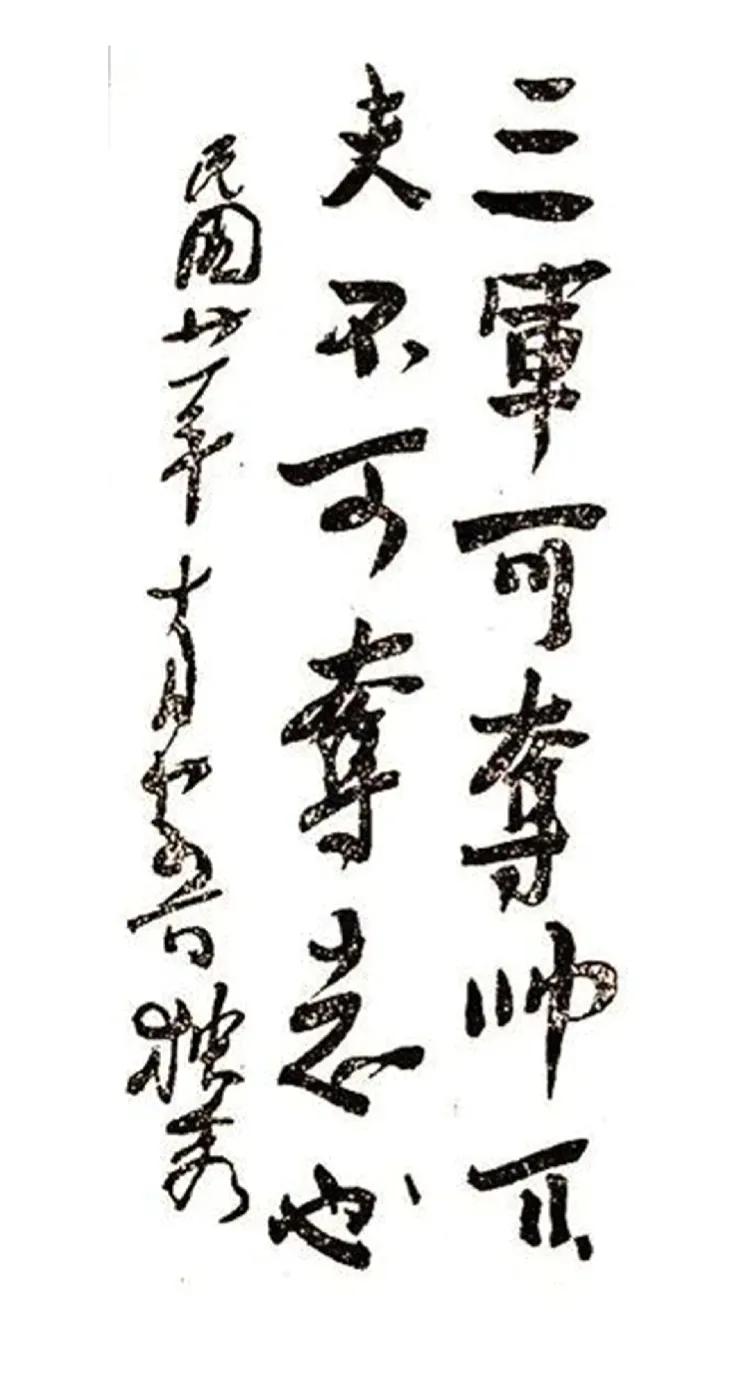 三軍可奪帥匹
夫不可奪志也
民國廿一年十月日獨秀